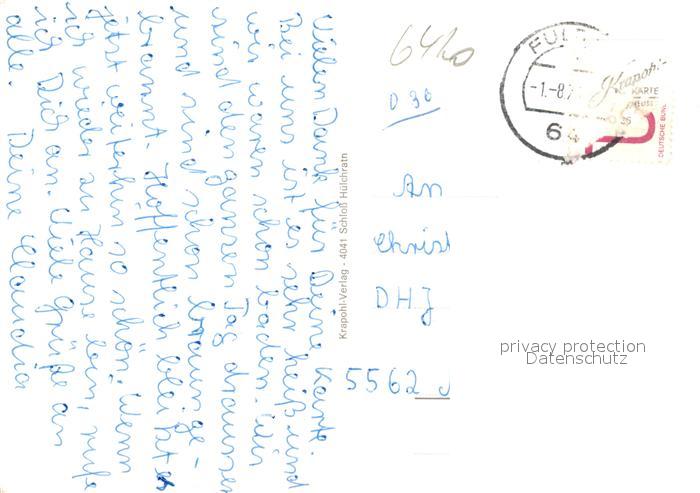 Vielen Dank für Deine Karte
Bei uns ist es sehr heiß und
wir waren schon baden. Wir
sind den ganzen Tag draussen
und sind schon braun ge-
brannt. Hoffentlich bleibt es
jetzt weiterhin so schön. Wenn
ich wieder zu Hause bin, rufe
ich Dich an. Viele Grüße an
alle. Deine Claudia
Krapohl-Verlag - 4041 Schloß Hülchrath
6420
D 30
FUL
-1.-8.7
64
Krapohl-
KARTE
DEUTSCHE BUN
An
Christ
DHJ
5562
privacy protection
Datenschutz